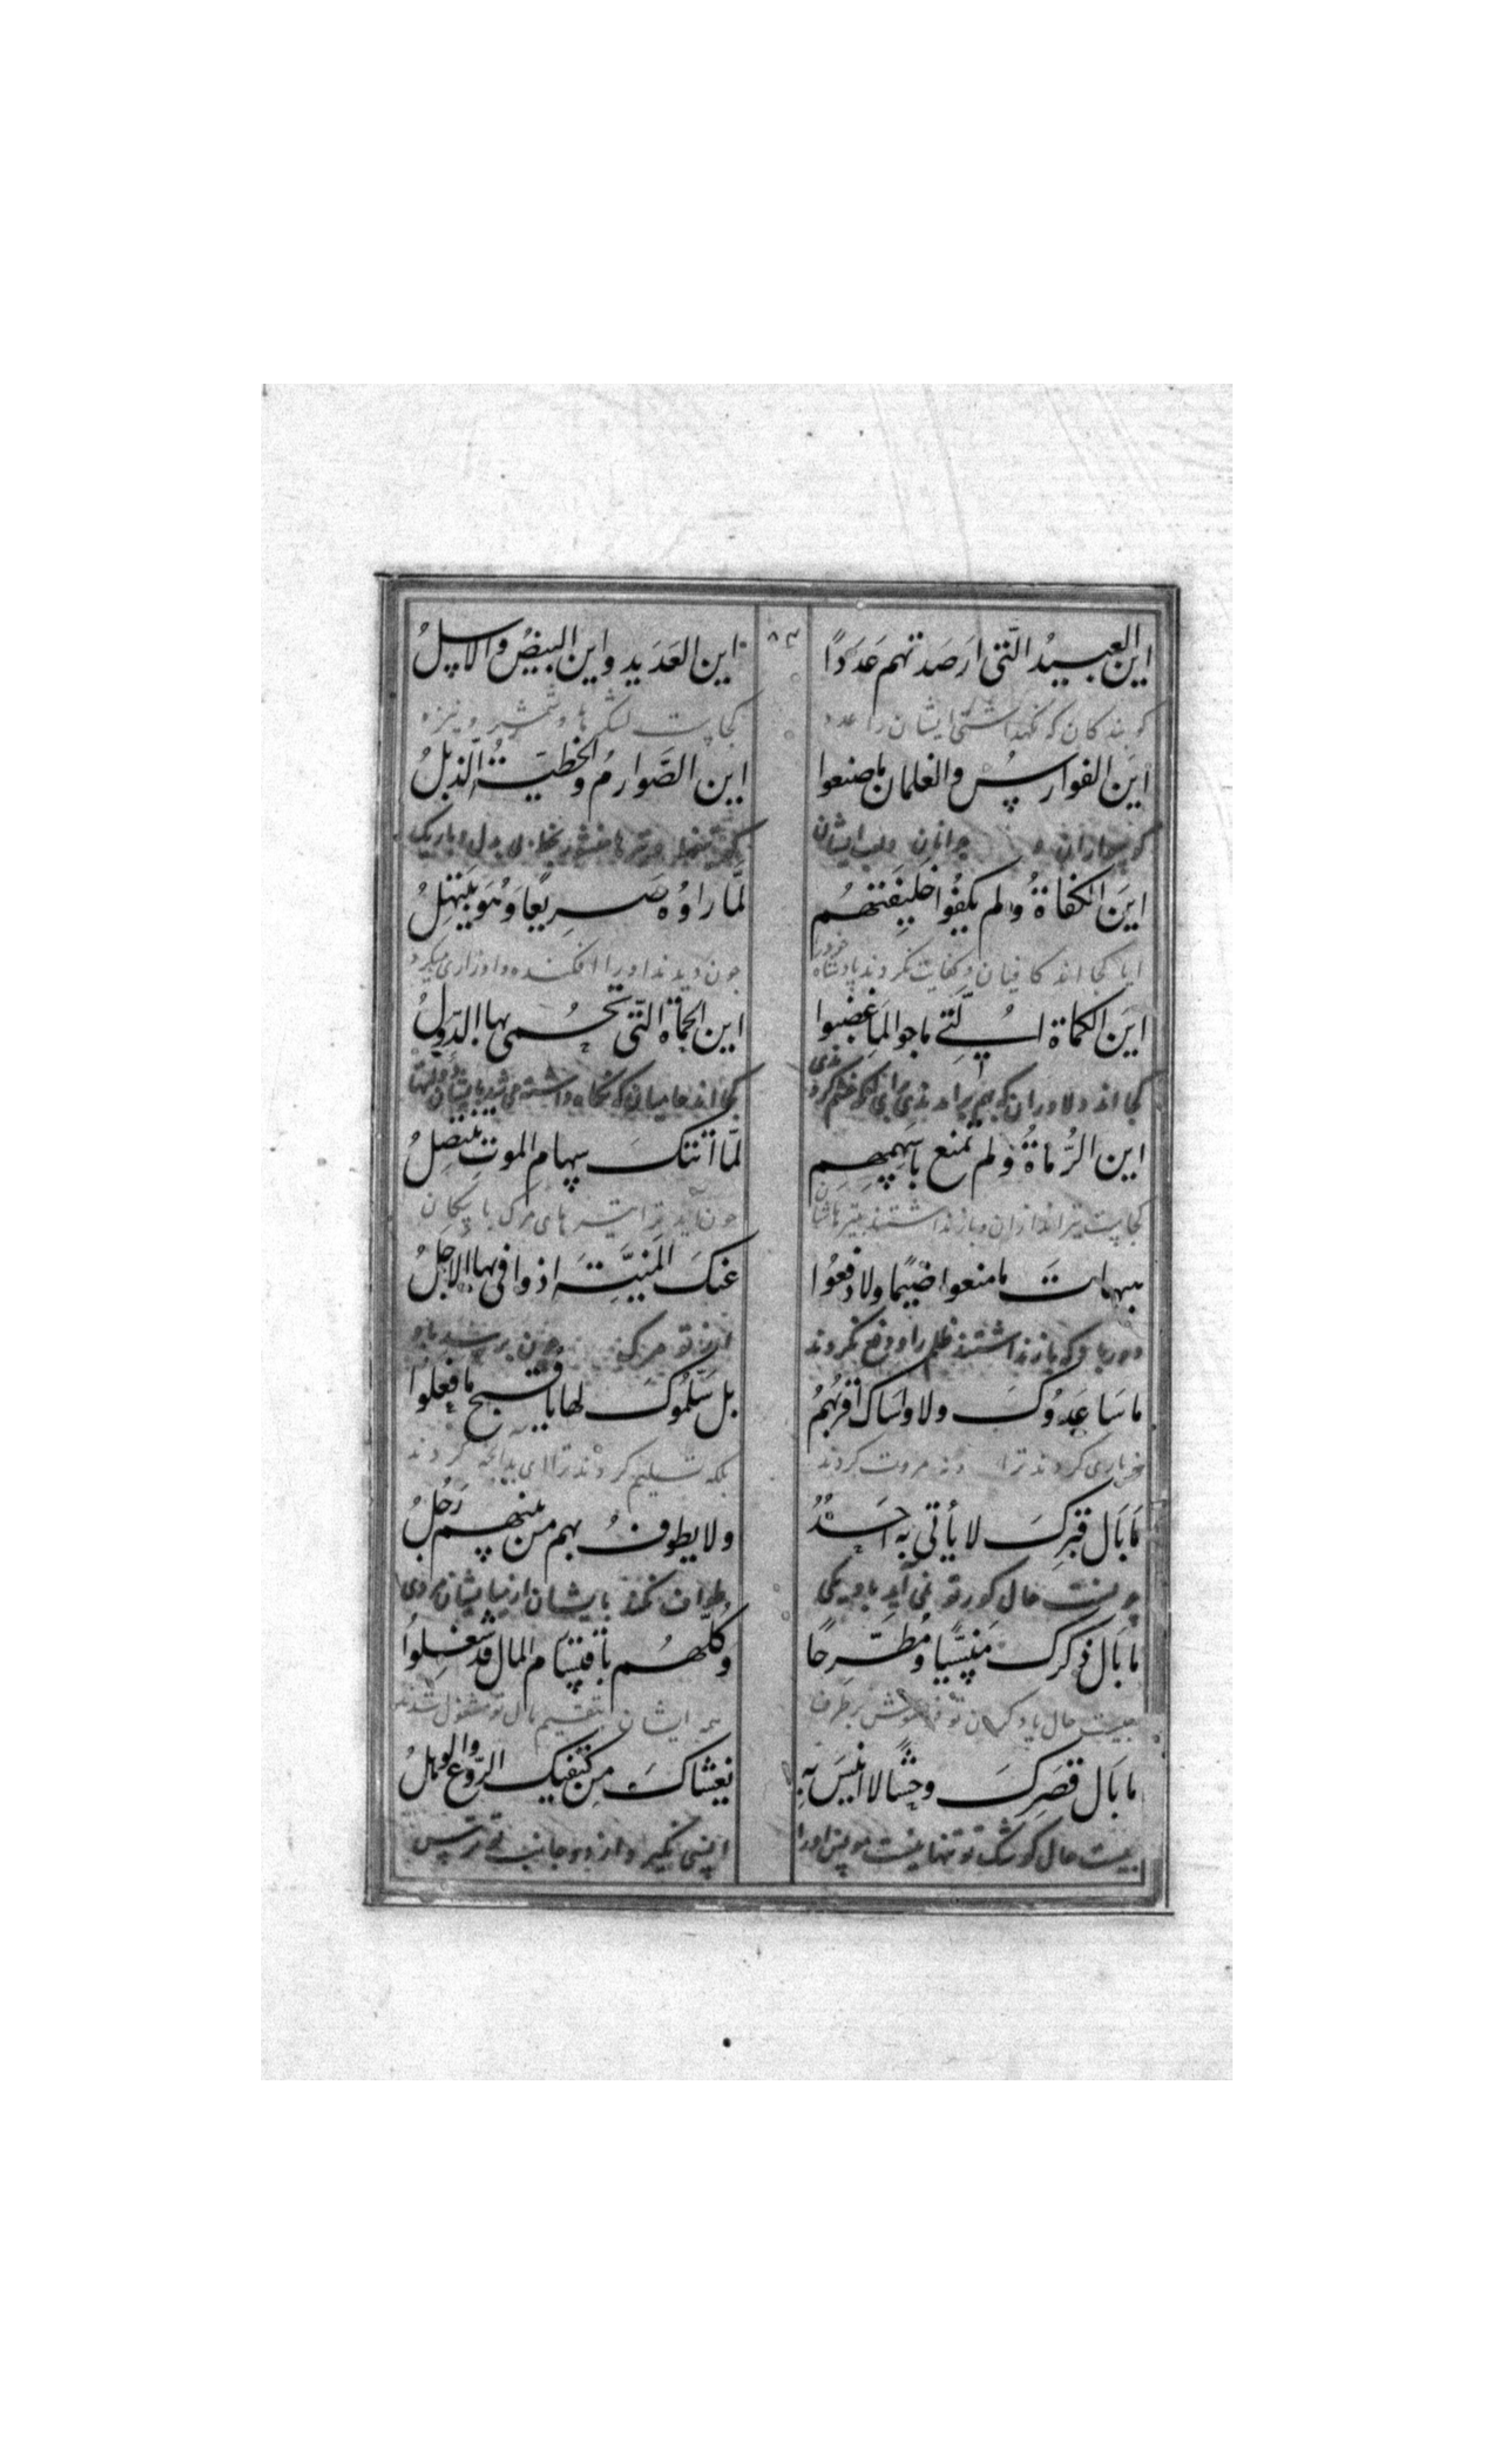 این العبیدُ الّتی ارصدتهم عَدَدًا
این العَدَید و این البیضُ والاسلُ
کو بندکان که نکهداشتی ایشان را عدد
کجاست لشکرها و شمشیر و نیزه
اینَ الفوارسُ والغلمان ما صنعوا
این الصَّوارمُ والخطیّةُ الذبلُ
کو سواران و جوانان
اینَ الکفاةُ ولم یکفُوا خلیفتهُم
لمّا راوُه صَریعًا وَهُوَ یَبتهلُ
ایا کجااند کافیان و کفایت نکردند پادشاه خود را
چون دیدند او را افکنده و او زاری میکرد
اینَ الکماة الّتی ماجوا لما غضبوا
این الحماة الّتی تُحمی بها الدّولُ
کجااند دلاوران که
کجااند حامیان که نکاه داشته می شد بایشان دولتها
این الرُّماةُ ولم تمنع باسهمِهِم
لمّا اتتک سهام الموتِ تنتصلُ
کجاست تیراندازان و بازنداشتند بتیرهاشان
چون آمد ترا تیرهای مرک با پیکان
هیهات ما منعوا ضیمًا ولا دفعُوا
عنکَ المنیّةَ اذ وافی بها الاجلُ
دور باد که بازنداشتند ظلم را و دفع نکردند
از تو مرک چون برسید باو
ما سَاعَدوُکَ ولا واسَاک اقربُهُم
بل سَلَّموُکَ لها یا قبحَ ما فعلوُا
نه یاری کردند ترا و نه مروت کردند
بلکه تسلیم کردند ترا ای بدانچه کردند
مَا بَال قبرکَ لا یأتی به احَدُ
ولا یطوفُ بهم من بینهم رَجُلُ
چیست حال کور تو نمی آید باو یکی
طواف نکند بایشان از میانشان مردی
مَا بَال ذکرک مَنسیًّا ومُطّرحًا
وکلّهُم باقتسَام المال قد شغلوُا
چیست حال یاد کردن تو فراموش برطرف
همه ایشان بتقسیم مال تو مشغول شدند
مَا بَال قصَرِکَ وحشًا لا انیسَ بهِ
یَغشاکَ من کنفیک الرّوع والوهلُ
چیست حال کوشک تو تنها نیست مونس او را